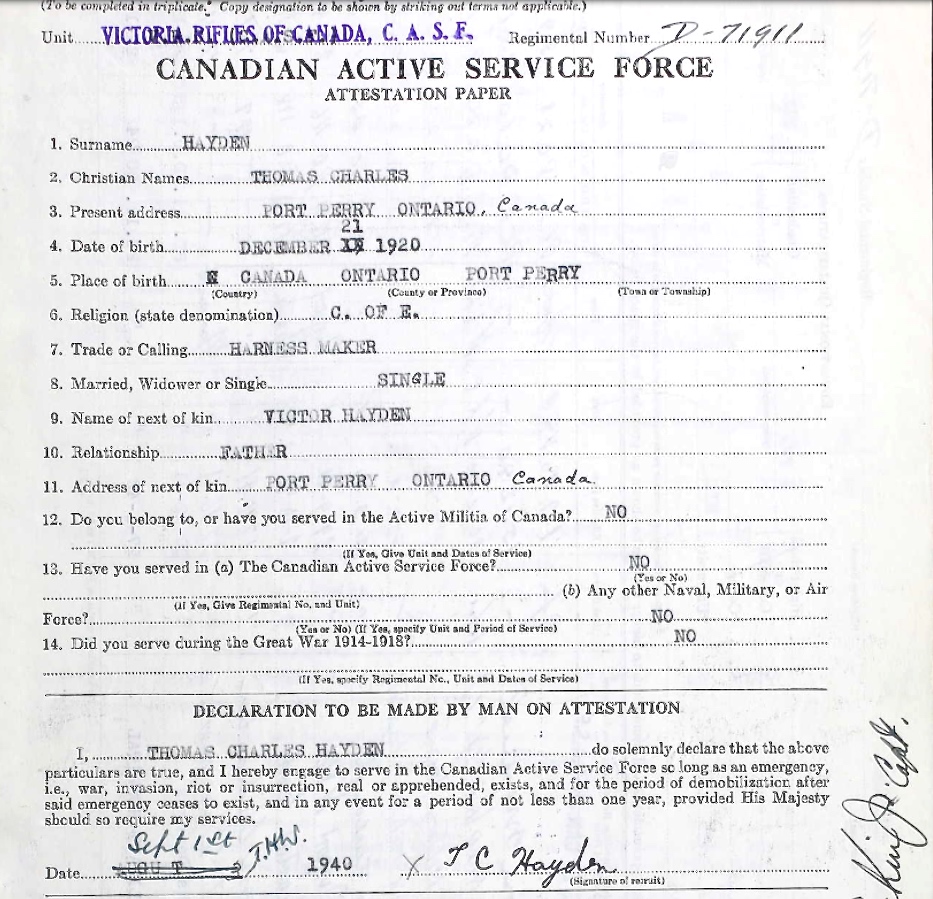 (To be completed in triplicate. Copy designation to be shown by striking out terms not applicable.)
Unit VICTORIA RIFLES OF CANADA, C. A. S. F. Regimental Number D-71911
CANADIAN ACTIVE SERVICE FORCE
ATTESTATION PAPER
1. Surname HAYDEN
2. Christian Names THOMAS CHARLES
3. Present address PORT PERRY ONTARIO, Canada
21
4. Date of birth DECEMBER 1920
5. Place of birth CANADA ONTARIO PORT PERRY
(Country) (County or Province) (Town or Township)
6. Religion (state denomination) C. OF E.
7. Trade or Calling HARNESS MAKER
8. Married, Widower or Single SINGLE
9. Name of next of kin VICTOR HAYDEN
10. Relationship FATHER
11. Address of next of kin PORT PERRY ONTARIO Canada
12. Do you belong to, or have you served in the Active Militia of Canada? NO
(If Yes, Give Unit and Dates of Service)
13. Have you served in (a) The Canadian Active Service Force? NO
(Yes or No)
(b) Any other Naval, Military, or Air
(If Yes, Give Regimental No. and Unit)
Force? NO
(Yes or No) (If Yes, specify Unit and Period of Service)
14. Did you serve during the Great War 1914-1918? NO
(If Yes, specify Regimental No., Unit and Dates of Service)
DECLARATION TO BE MADE BY MAN ON ATTESTATION
I, THOMAS CHARLES HAYDEN do solemnly declare that the above
particulars are true, and I hereby engage to serve in the Canadian Active Service Force so long as an emergency,
i.e., war, invasion, riot or insurrection, real or apprehended, exists, and for the period of demobilization after
said emergency ceases to exist, and in any event for a period of not less than one year, provided His Majesty
should so require my services.
Sept 1st
Date 1940 X T C Hayden
(Signature of recruit)
Capt.